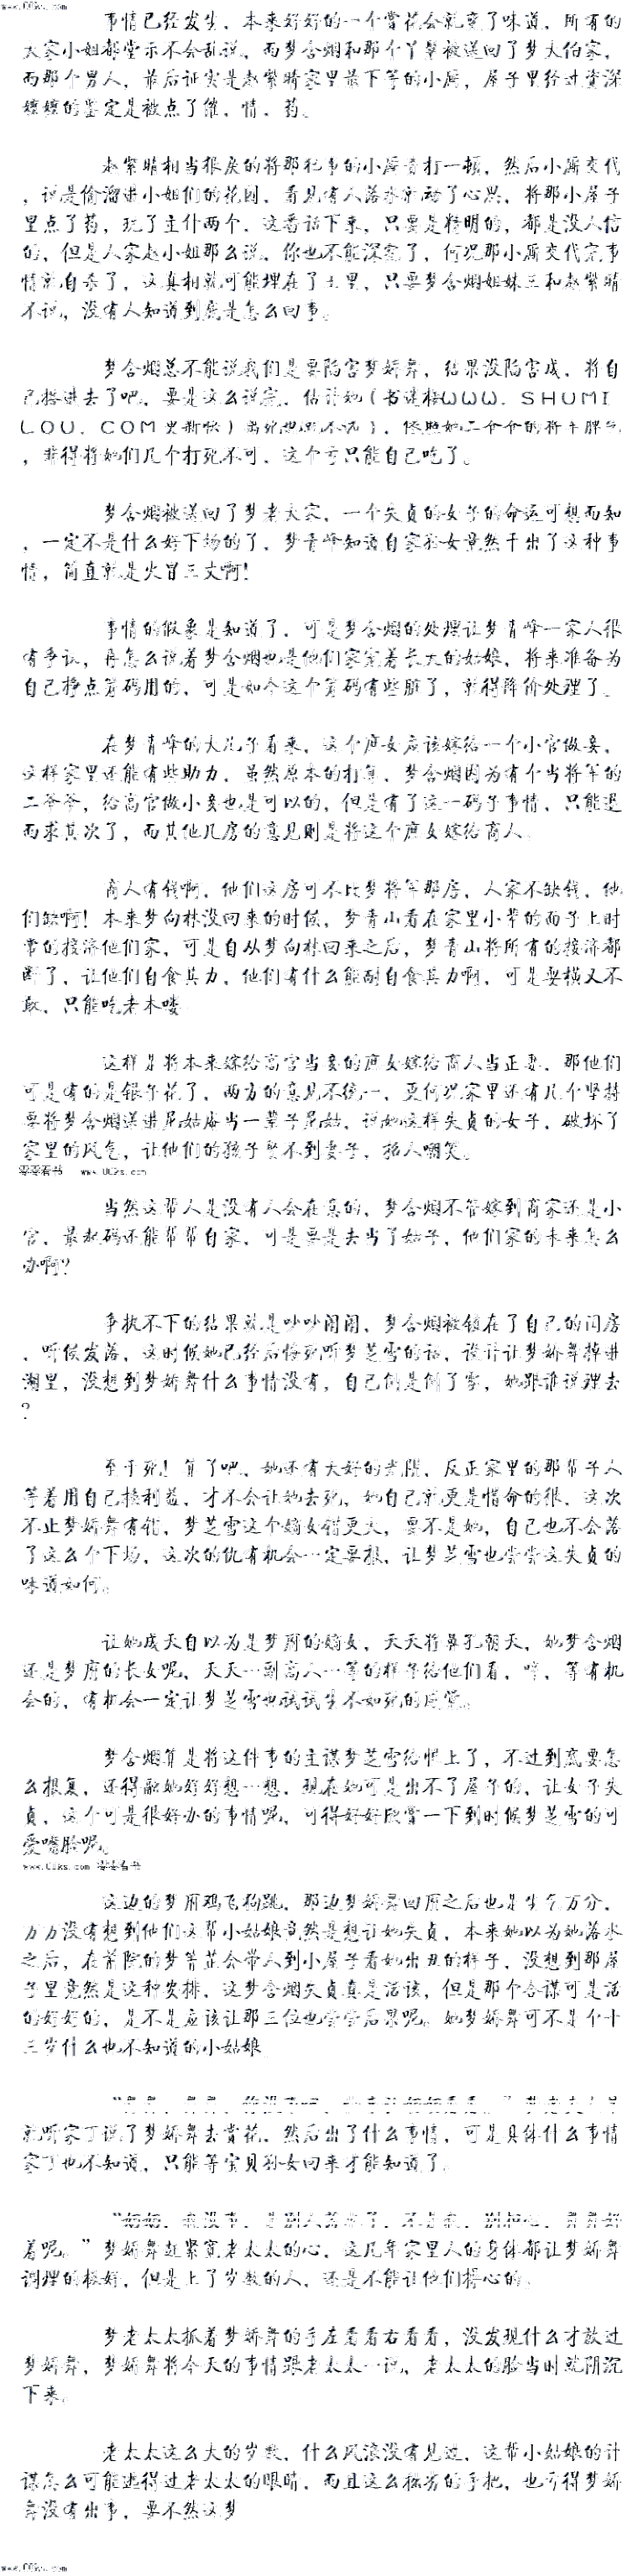 www.00ks.com
事情已经发生，本来好好的一个赏花会就变了味道，所有的
大家小姐都表示不会乱说，而梦含烟和那个丫鬟被送回了梦大伯家，
而那个男人，最后证实是赵紫晴家里最下等的小厮，屋子里经过资深
嬷嬷的鉴定是被点了催、情、药。
赵紫晴相当狠戾的将那犯事的小厮毒打一顿，然后小厮交代
，说是偷溜进小姐们的花园，看见有人落水就动了心思，将那小屋子
里点了药，玩了主仆两个，这番话下来，只要是精明的，都是没人信
的，但是人家赵小姐那么说，你也不能深究了，何况那小厮交代完事
情就自杀了，这真相就可能埋在了土里，只要梦含烟姐妹三和赵紫晴
不说，没有人知道到底是怎么回事。
梦含烟总不能说我们是要陷害梦娇舞，结果没陷害成，将自
己搭进去了吧，要是这么说完，估计她（书迷楼WWW．SHUMI
LOU．COM更新快），依照她二爷爷的将军脾气
，非得将她们几个打死不可，这个亏只能自己吃了。
梦含烟被送回了梦老大家，一个失贞的女子的命运可想而知
，一定不是什么好下场的了，梦青峰知道自家孙女竟然干出了这种事
情，简直就是火冒三丈啊！
事情的假象是知道了，可是梦含烟的处理让梦青峰一家人很
有争议，再怎么说着梦含烟也是他们家宠着长大的姑娘，将来准备为
自己挣点筹码用的，可是如今这个筹码有些脏了，就得降价处理了。
在梦青峰的大儿子看来，这个庶女应该嫁给一个小官做妾，
这样家里还能有些助力，虽然原本的打算，梦含烟因为有个当将军的
二爷爷，给高官做小妾也是可以的，但是有了这一码子事情，只能退
而求其次了，而其他几房的意见则是将这个庶女嫁给商人。
商人有钱啊，他们这房可不比梦将军那房，人家不缺钱，他
们缺啊！本来梦向林没回来的时候，梦青山看在家里小辈的面子上时
常的接济他们家，可是自从梦向林回来之后，梦青山将所有的接济都
断了，让他们自食其力，他们有什么能耐自食其力啊，可是耍横又不
敢，只能吃老本喽
这样是将本来嫁给高官当妾的庶女嫁给商人当正妻，那他们
可是有的是银子花了，两方的意见不统一，更何况家里还有几个坚持
要将梦含烟送进尼姑庵当一辈子尼姑，说她这样失贞的女子，破坏了
家里的风气，让他们的孩子娶不到妻子，招人嘲笑。
零零看书 www.00ks.com
当然这帮人是没有人会在意的，梦含烟不管嫁到商家还是小
官，最起码还能帮帮自家，可是要是去当了姑子，他们家的未来怎么
办啊？
争执不下的结果就是吵吵闹闹，梦含烟被锁在了自己的闺房
，听候发落，这时候她已经后悔死听梦芝雪的话，设计让梦娇舞掉进
湖里，没想到梦娇舞什么事情没有，自己倒是倒了霉，她跟谁说理去
？
至于死！算了吧，她还有大好的光阴，反正家里的那帮子人
等着用自己换利益，才不会让她去死，她自己就更是惜命的很，这次
不止梦娇舞有错，梦芝雪这个嫡女错更大，要不是她，自己也不会落
了这么个下场，这次的仇有机会一定要报，让梦芝雪也尝尝这失贞的
味道如何。
让她成天自以为是梦府的嫡女，天天将鼻孔朝天，她梦含烟
还是梦府的长女呢，天天一副高人一等的样子给他们看，哼，等有机
会的，有机会一定让梦芝雪也试试生不如死的感觉。
梦含烟算是将这件事的主谋梦芝雪给恨上了，不过到底要怎
么报复，还得融她好好想一想，现在她可是出不了屋子的，让女子失
贞，这个可是很好办的事情呢，可得好好欣赏一下到时候梦芝雪的可
爱嘴脸呢。
www.00ks.com 零零看书
这边的梦府鸡飞狗跳，那边梦娇舞回府之后也是生气万分，
万万没有想到他们这帮小姑娘竟然是想让她失贞，本来她以为她落水
之后，在前院的梦等芷会带人到小屋子看她出丑的样子，没想到那屋
子里竟然是这种安排，这梦含烟失贞真是活该，但是那个合谋可是活
的好好的，是不是应该让那三位也尝尝后果呢。她梦娇舞可不是个十
三岁什么也不知道的小姑娘
就听家丁说了梦娇舞去赏花，然后出了什么事情，可是具体什么事情
家丁也不知道，只能等宝贝孙女回来才能知道了。
着呢。”梦娇舞赶紧宽老太太的心，这几年家里人的身体都让梦娇舞
调理的极好，但是上了岁数的人，还是不能让他们操心的。
梦老太太抓着梦娇舞的手左看看右看看，没发现什么才放过
梦娇舞，梦娇舞将今天的事情跟老太太一说，老太太的脸当时就阴沉
下来。
老太太这么大的岁数，什么风浪没有见过，这帮小姑娘的计
谋怎么可能逃得过老太太的眼睛，而且这么拙劣的手把，也亏得梦娇
舞没有出事，要不然这梦
www.00ks.com